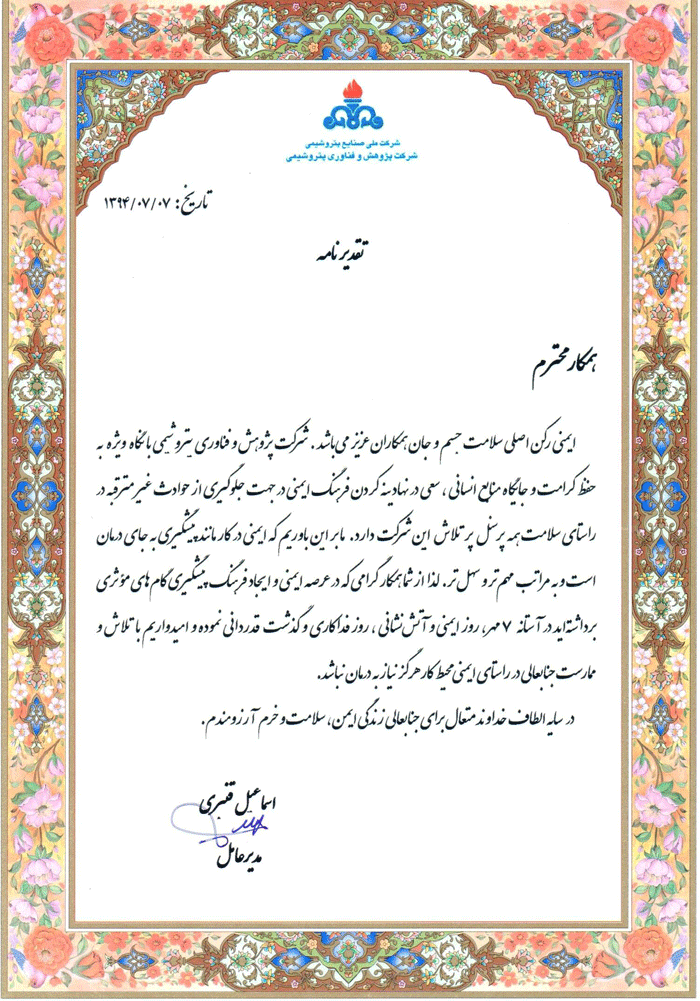 شرکت ملی صنایع پتروشیمی
شرکت پژوهش و فناوری پتروشیمی
تاریخ: ۱۳۹۴/۰۷/۰۷
تقدیر نامه
همکار محترم
ایمنی رکن اصلی سلامت جسم و جان همکاران عزیز می باشد. شرکت پژوهش و فناوری پتروشیمی با نگاه ویژه به
حفظ کرامت و جایگاه منابع انسانی، سعی در نهادینه کردن فرهنگ ایمنی در جهت جلوگیری از حوادث غیرمترقبه در
راستای سلامت همه پرسنل پر تلاش این شرکت دارد. ما بر این باوریم که ایمنی در کار مانند پیشگیری به جای درمان
است و به مراتب مهم تر و سهل تر. لذا از شما همکار گرامی که در عرصه ایمنی و ایجاد فرهنگ پیشگیری گام های مؤثری
برداشته اید در آستانه ۷ مهر، روز ایمنی و آتش نشانی، روز فداکاری و گذشت قدردانی نموده و امیدواریم با تلاش و
ممارست جنابعالی در راستای ایمنی محیط کار هرگز نیاز به درمان نباشد.
در سایه الطاف خداوند متعال برای جنابعالی زندگی ایمن، سلامت و خرم آرزومندم.
اسماعیل قنبری
مدیرعامل